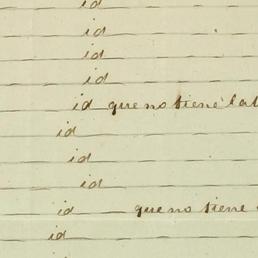 id
id
id
id
id que no tiene
id
id
id
id que no tiene
id